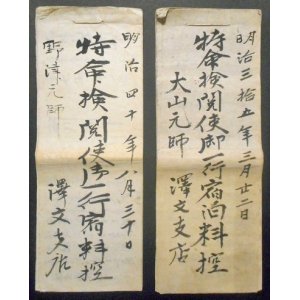 明治三拾五年三月廿二日
特命検閲使御一行宿泊料控
大山元師
澤文支店
明治四十年八月三十日
特命検閲使御一行宿料控
野津元師
澤文支店